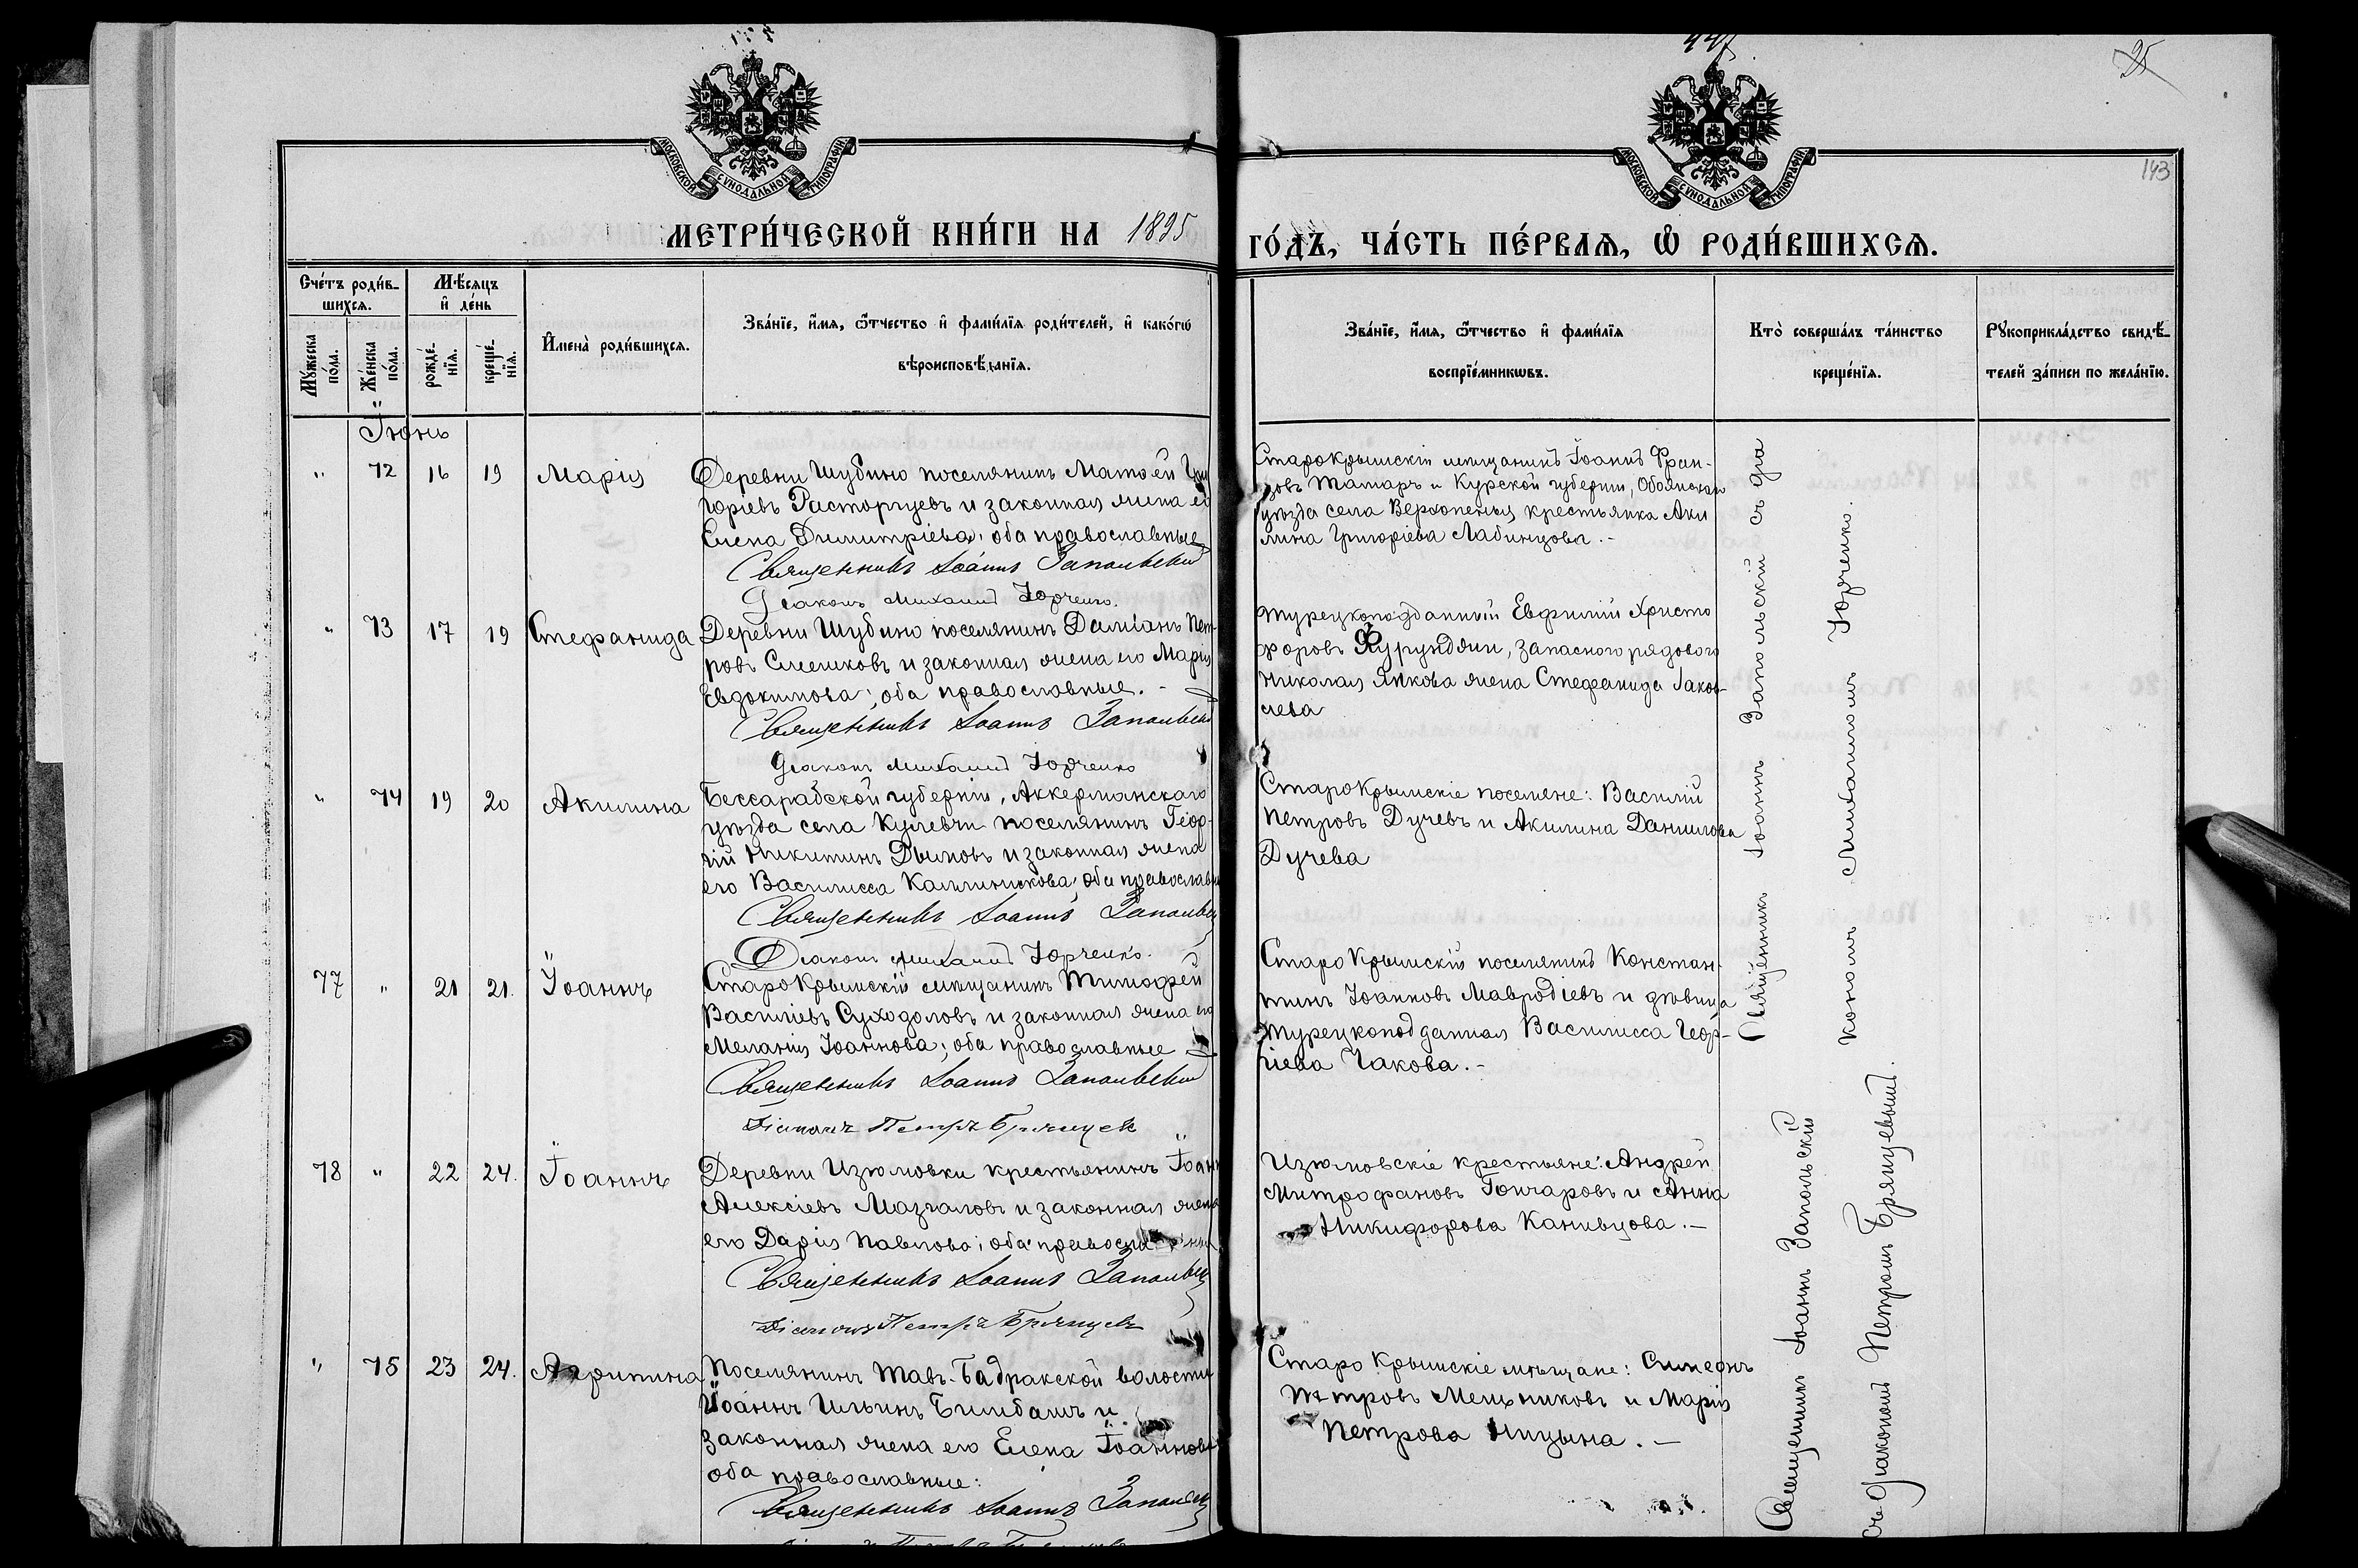 25
143
МОСКОВСКОЙ СѴНОДАЛЬНОЙ ТИПОГРАФІИ
МОСКОВСКОЙ СѴНОДАЛЬНОЙ ТИПОГРАФІИ
МЕТРИ́ЧЕСКОЙ КНИ́ГИ НА 1895 ГО́ДЪ, ЧА́СТЬ ПЕ́РВАѦ, Ѡ РОДИ́ВШИХСѦ.
Сче́тъ роди́в-
шихсѧ.
Мꙋ́жеска по́ла.
Же́нска по́ла.
Мѣ́сяцъ
и҆ де́нь
рожде́-
нїѧ.
креще́-
нїѧ.
И҆мена̀ роди́вшихсѧ.
Зва́нїе, и҆́мѧ, ѻ҆́тчество и҆ фами́лїѧ роди́телей, и҆ како́гѡ
вѣроисповѣ́данїѧ.
Зва́нїе, и҆́мѧ, ѻ҆́тчество и҆ фами́лїѧ
воспрїе́мникѡвъ.
Кто̀ соверша́лъ та́инство
креще́нїѧ.
Рꙋкоприкла́дство свидѣ́-
телей за́писи по жела́нїю.
Іюнь
" 72 16 19 Марія
Деревни Шубино поселянинъ Матѳей Гри
горіевъ Расторгуевъ и законная жена его
Елена Димитріева; оба православные
Священникъ Іоаннъ Запольскій
Діаконъ Михаилъ Юрченко.
СтароКрымскій мѣщанинъ Іоаннъ Фран-
зовъ Татаръ и Курской губерніи, Обоянскаго
уѣзда села Верхопенья крестьянка Аки
лина Григоріева Лабинцова.-
" 73 17 19 Стефанида
Деревни Шубино поселянинъ Даміанъ Пет-
ровъ Слешковъ и законная жена его Марія
Евдокимова; оба православные.-
Священникъ Іоаннъ Запольскій
Діаконъ Михаилъ Юрченко
Турецкоподданный Евфимій Христо
форовъ Фурунджи, запаснаго рядового
Николая Янкова жена Стефанида Іаков-
лева
" 74 19 20 Акилина
Бессарабской губерніи, Аккерманскаго
уѣзда села Кулевчи поселянинъ Геор-
гій Никитинъ Дымовъ и законная жена
его Василисса Каллиникова; оба православн
Священникъ Іоаннъ Запольскій
Діаконъ Михаилъ Юрченко.
СтароКрымскіе поселяне: Василій
Петровъ Дучевъ и Акилина Данилова
Дучева
77 " 21 21. Іоаннъ
СтароКрымскій мѣщанинъ Тимофей
Василіевъ Суходоловъ и законная жена его
Меланія Іоаннова; оба православные
Священникъ Іоаннъ Запольскій
Діаконъ Петръ Брянцев
Старо Крымскій поселянинъ Констан-
тинъ Іоанновъ Мавродіевъ и дѣвица
турецкоподданная Василисса Геор-
гіева Чакова.-
78 " 22 24. Іоаннъ
Деревни Изюмовки крестьянинъ Іоанн
Алексіевъ Мазгаловъ и законная жена
его Дарія Павлова; оба православные
Священникъ Іоаннъ Запольскій
Діаконъ Петръ Брянцевъ
Изюмовскіе крестьяне: Андрей
Митрофановъ Гончаровъ и Анна
Никифорова Канивцова.-
" 75 23 24. Агрипина
Поселянинъ Тавъ-Бадракской волости
Іоаннъ Ильинъ Билибашъ и
законная жена его Елена Іоаннова
оба православные:
Священникъ Іоаннъ Запольскій
Старо Крымскіе мѣщане: Симеонъ
Петровъ Мельниковъ и Марія
Петрова Ницына.-
Священникъ Іоаннъ Запольскій съ діа
кономъ Михаиломъ Юрченко.
Священникъ Іоаннъ Запольскій
съ діакономъ Петромъ Брянцевымъ.